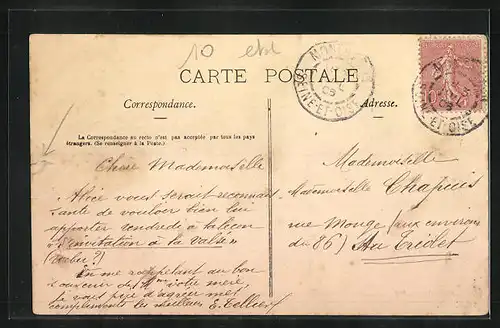 10
CARTE POSTALE
Correspondance.
Adresse.
La Correspondance au recto n'est pas acceptée par tous les pays
étrangers. (Se renseigner à la Poste.)
Chère Mademoiselle
Alice vous serait reconnais
sante de vouloir bien lui
apporter vendredi à
"l'invitation à la valse"
(Weber?)
En me rappelant au bon
souvenir de Mme votre mère,
je vous prie d'agréer mes
compliments les meilleurs E. Tellier
Mademoiselle
Mademoiselle Chapuis
rue Monge (aux environs
du 86) Au Tredet
ET-OISE